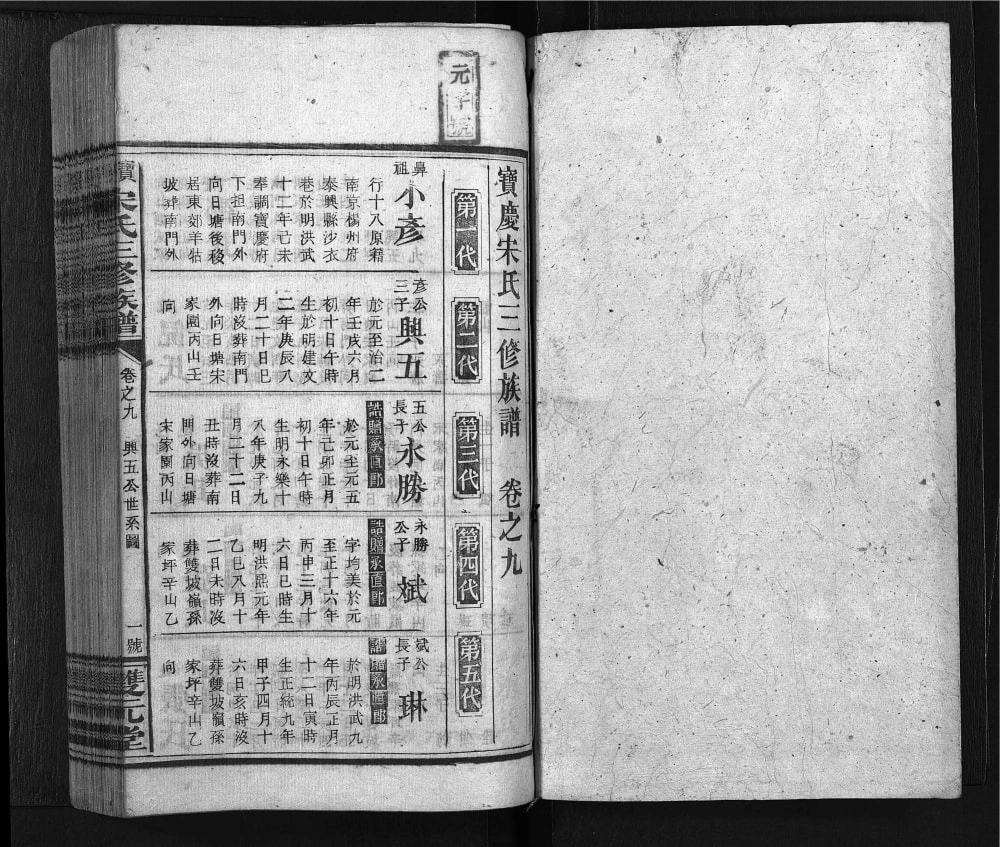 元字號
寶慶宋氏三修族譜 卷之九
第一代
鼻祖
小彥
行十八原籍
南京楊州府
泰興縣沙衣
巷於明洪武
十二年己未
奉調寶慶府
下担南門外
向日塘後移
居東郊羊牯
坡葬南門外
第二代
彥公三子
興五
於元至治二
年壬戌六月
初十日午時
生於明建文
二年庚辰八
月二十日巳
時沒葬南門
外向日塘宋
家園丙山壬
向
第三代
五公長子
永勝
誥贈承直郎
於元至元五
年己卯正月
初十日午時
生明永樂十
八年庚子九
月二十二日
丑時沒葬南
門外向日塘
宋家園丙山
第四代
永勝公子
斌
誥贈承直郎
字均美於元
至正十六年
丙申三月十
六日巳時生
明洪熙元年
乙巳八月十
二日未時沒
葬雙坡嶺孫
家坪辛山乙
第五代
斌公長子
琳
誥贈承直郎
於明洪武九
年丙辰正月
十二日寅時
生正統九年
甲子四月十
六日亥時沒
葬雙坡嶺孫
家坪辛山乙
向
寶 宋氏三修族譜
卷之九 興五公世系圖
一號
雙元堂